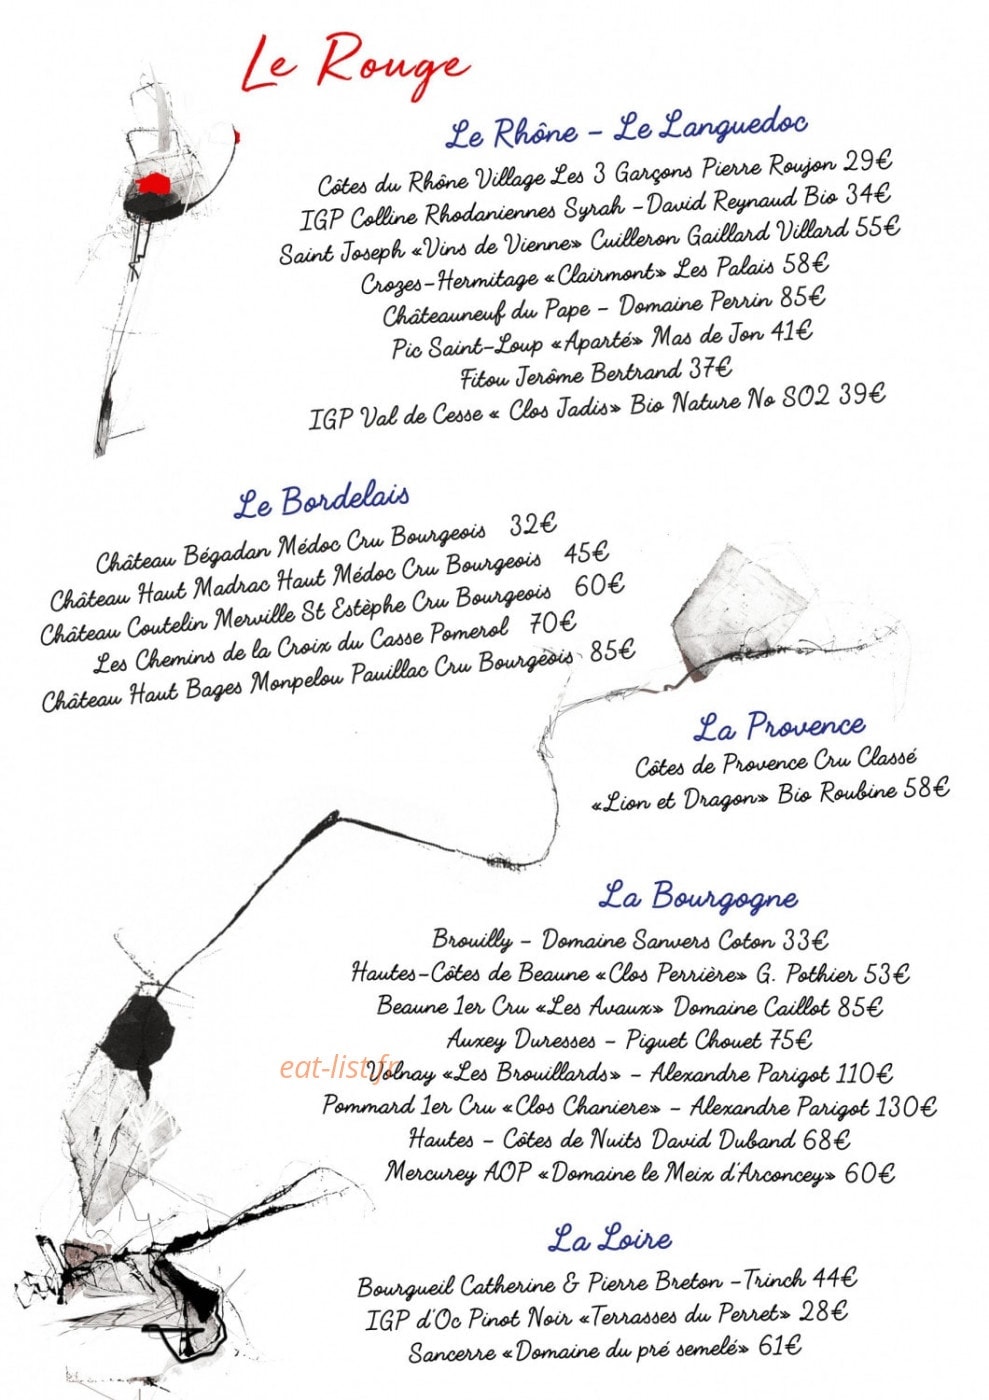 Le Rouge
Le Rhône - Le Languedoc
Côtes du Rhône Village Les 3 Garçons Pierre Roujon 29€
IGP Colline Rhodaniennes Syrah -David Reynaud Bio 34€
Saint Joseph «Vins de Vienne» Cuilleron Gaillard Villard 55€
Crozes-Hermitage «Clairmont» Les Palais 58€
Châteauneuf du Pape - Domaine Perrin 85€
Pic Saint-Loup «Aparté» Mas de Jon 41€
Fitou Jerôme Bertrand 37€
IGP Val de Cesse « Clos Jadis» Bio Nature No SO2 39€
Le Bordelais
Château Bégadan Médoc Cru Bourgeois 32€
Château Haut Madrac Haut Médoc Cru Bourgeois 45€
Château Coutelin Merville St Estèphe Cru Bourgeois 60€
Les Chemins de la Croix du Casse Pomerol 70€
Château Haut Bages Monpelou Pauillac Cru Bourgeois 85€
La Provence
Côtes de Provence Cru Classé
«Lion et Dragon» Bio Roubine 58€
La Bourgogne
Brouilly - Domaine Sanvers Coton 33€
Hautes-Côtes de Beaune «Clos Perrière» G. Pothier 53€
Beaune 1er Cru «Les Avaux» Domaine Caillot 85€
Auxey Duresses - Piguet Chouet 75€
eat-list.fr
Volnay «Les Brouillards» - Alexandre Parigot 110€
Pommard 1er Cru «Clos Chaniere» - Alexandre Parigot 130€
Hautes - Côtes de Nuits David Duband 68€
Mercurey AOP «Domaine le Meix d'Arconcey» 60€
La Loire
Bourgueil Catherine & Pierre Breton -Trinch 44€
IGP d'Oc Pinot Noir «Terrasses du Perret» 28€
Sancerre «Domaine du pré semelé» 61€